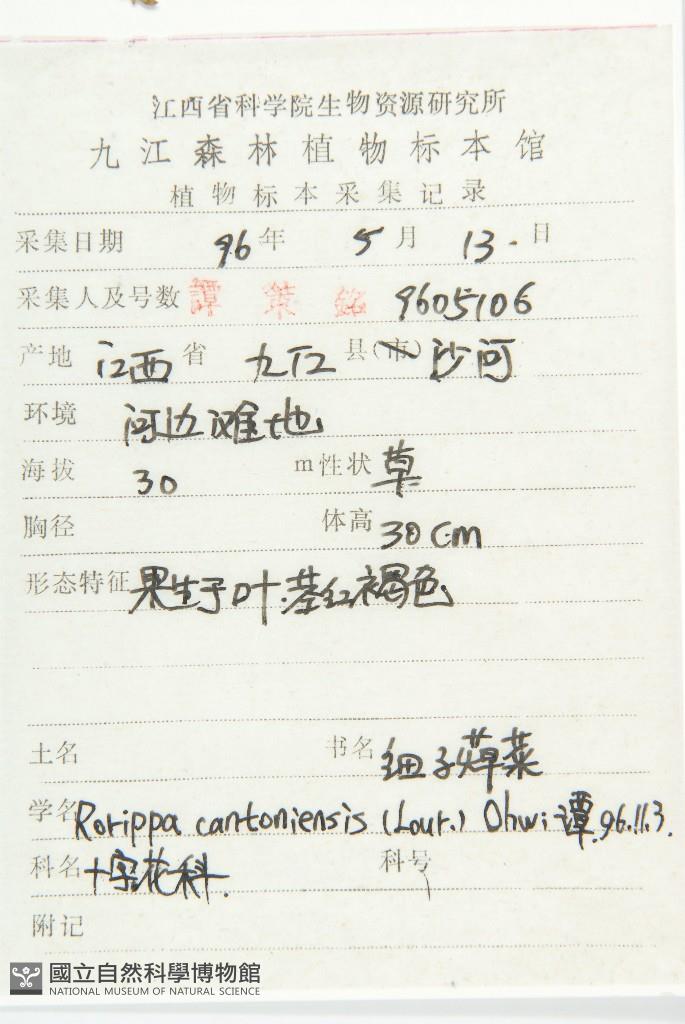 江西省科学院生物资源研究所
九江森林植物标本馆
植物标本采集记录
采集日期 96年 5月 13.日
采集人及号数 譚策銘 9605106
产地 江西省 九江县(市) 沙河
环境 河边滩地
海拔 30 m 性状 草
胸径 体高 30cm
形态特征 果生于叶.茎红褐色
土名 书名 细子蔊菜
学名 Rorippa cantoniensis (Lour.) Ohwi 谭.96.11.3.
科名 十字花科. 科号
附记
國立自然科學博物館
NATIONAL MUSEUM OF NATURAL SCIENCE